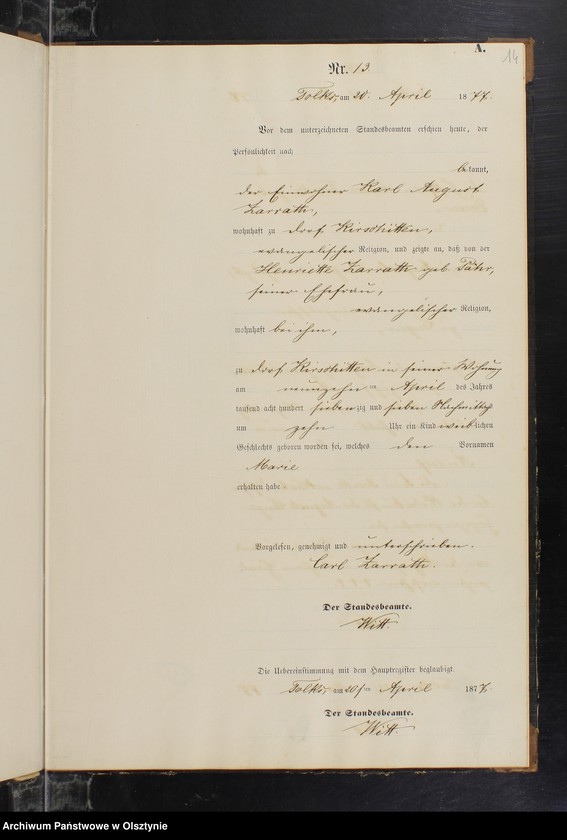 A.
14
Nr. 13.
Tolks, am 20. April 1877.
Vor dem unterzeichneten Standesbeamten erschien heute, der
Persönlichkeit nach
bekannt,
der Einwohner Karl August
Zarrath,
wohnhaft zu Dorf Kirschitten,
evangelischer Religion, und zeigte an, daß von der
Henriette Zarrath geb. Fähr,
seiner Ehefrau,
evangelischer Religion,
wohnhaft bei ihm,
zu Dorf Kirschitten in seiner Wohnung
am neunzehnten April des Jahres
tausend acht hundert siebenzig und sieben Nachmittag
um zehn Uhr ein Kind weiblichen
Geschlechts geboren worden sei, welches den Vornamen
Marie
erhalten habe
Vorgelesen, genehmigt und unterschrieben.
Carl Zarrath.
Der Standesbeamte.
Witt.
Die Uebereinstimmung mit dem Hauptregister beglaubigt.
Tolks, am 20ten April 1877.
Der Standesbeamte.
Witt.
Archiwum Państwowe w Olsztynie